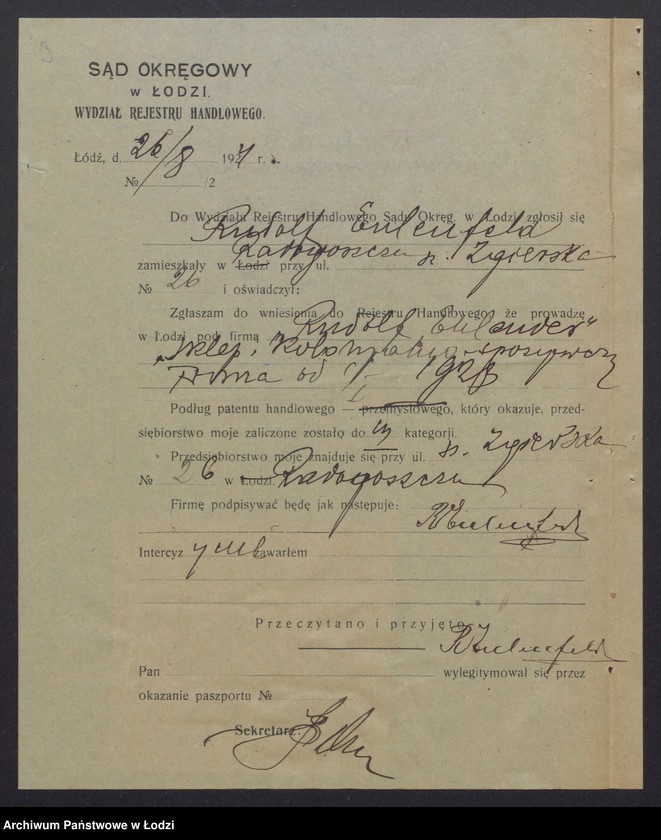 SĄD OKRĘGOWY
w ŁODZI.
WYDZIAŁ REJESTRU HANDLOWEGO.
Łódź, d. 26/8 1931 r.
№ /2
Do Wydziału Rejestru Handlowego Sądu Okręg. w Łodzi zgłosił się
Rudolf Eulenfeld
zamieszkały w Łodzi przy ul. Radogoszczu n. Zgierska
№ 26 i oświadczył:
Zgłaszam do wniesienia do Rejestru Handlowego, że prowadzę
w Łodzi pod firmą „Rudolf
Sklep Kolonjalno-spożywczy
Firma od 1/I 1928
Podług patentu handlowego — przemysłowego, który okazuje, przed-
siębiorstwo moje zaliczone zostało do III kategorji.
Przedsiębiorstwo moje znajduje się przy ul. n. Zgierska
№ 26 w Łodzi. Radogoszczu
Firmę podpisywać będę jak następuje:
REulenfeld
Intercyzy nie zawarłem
Przeczytano i przyjęto
REulenfeld
Pan wylegitymował się przez
okazanie paszportu №
Sekretarz:
Archiwum Państwowe w Łodzi